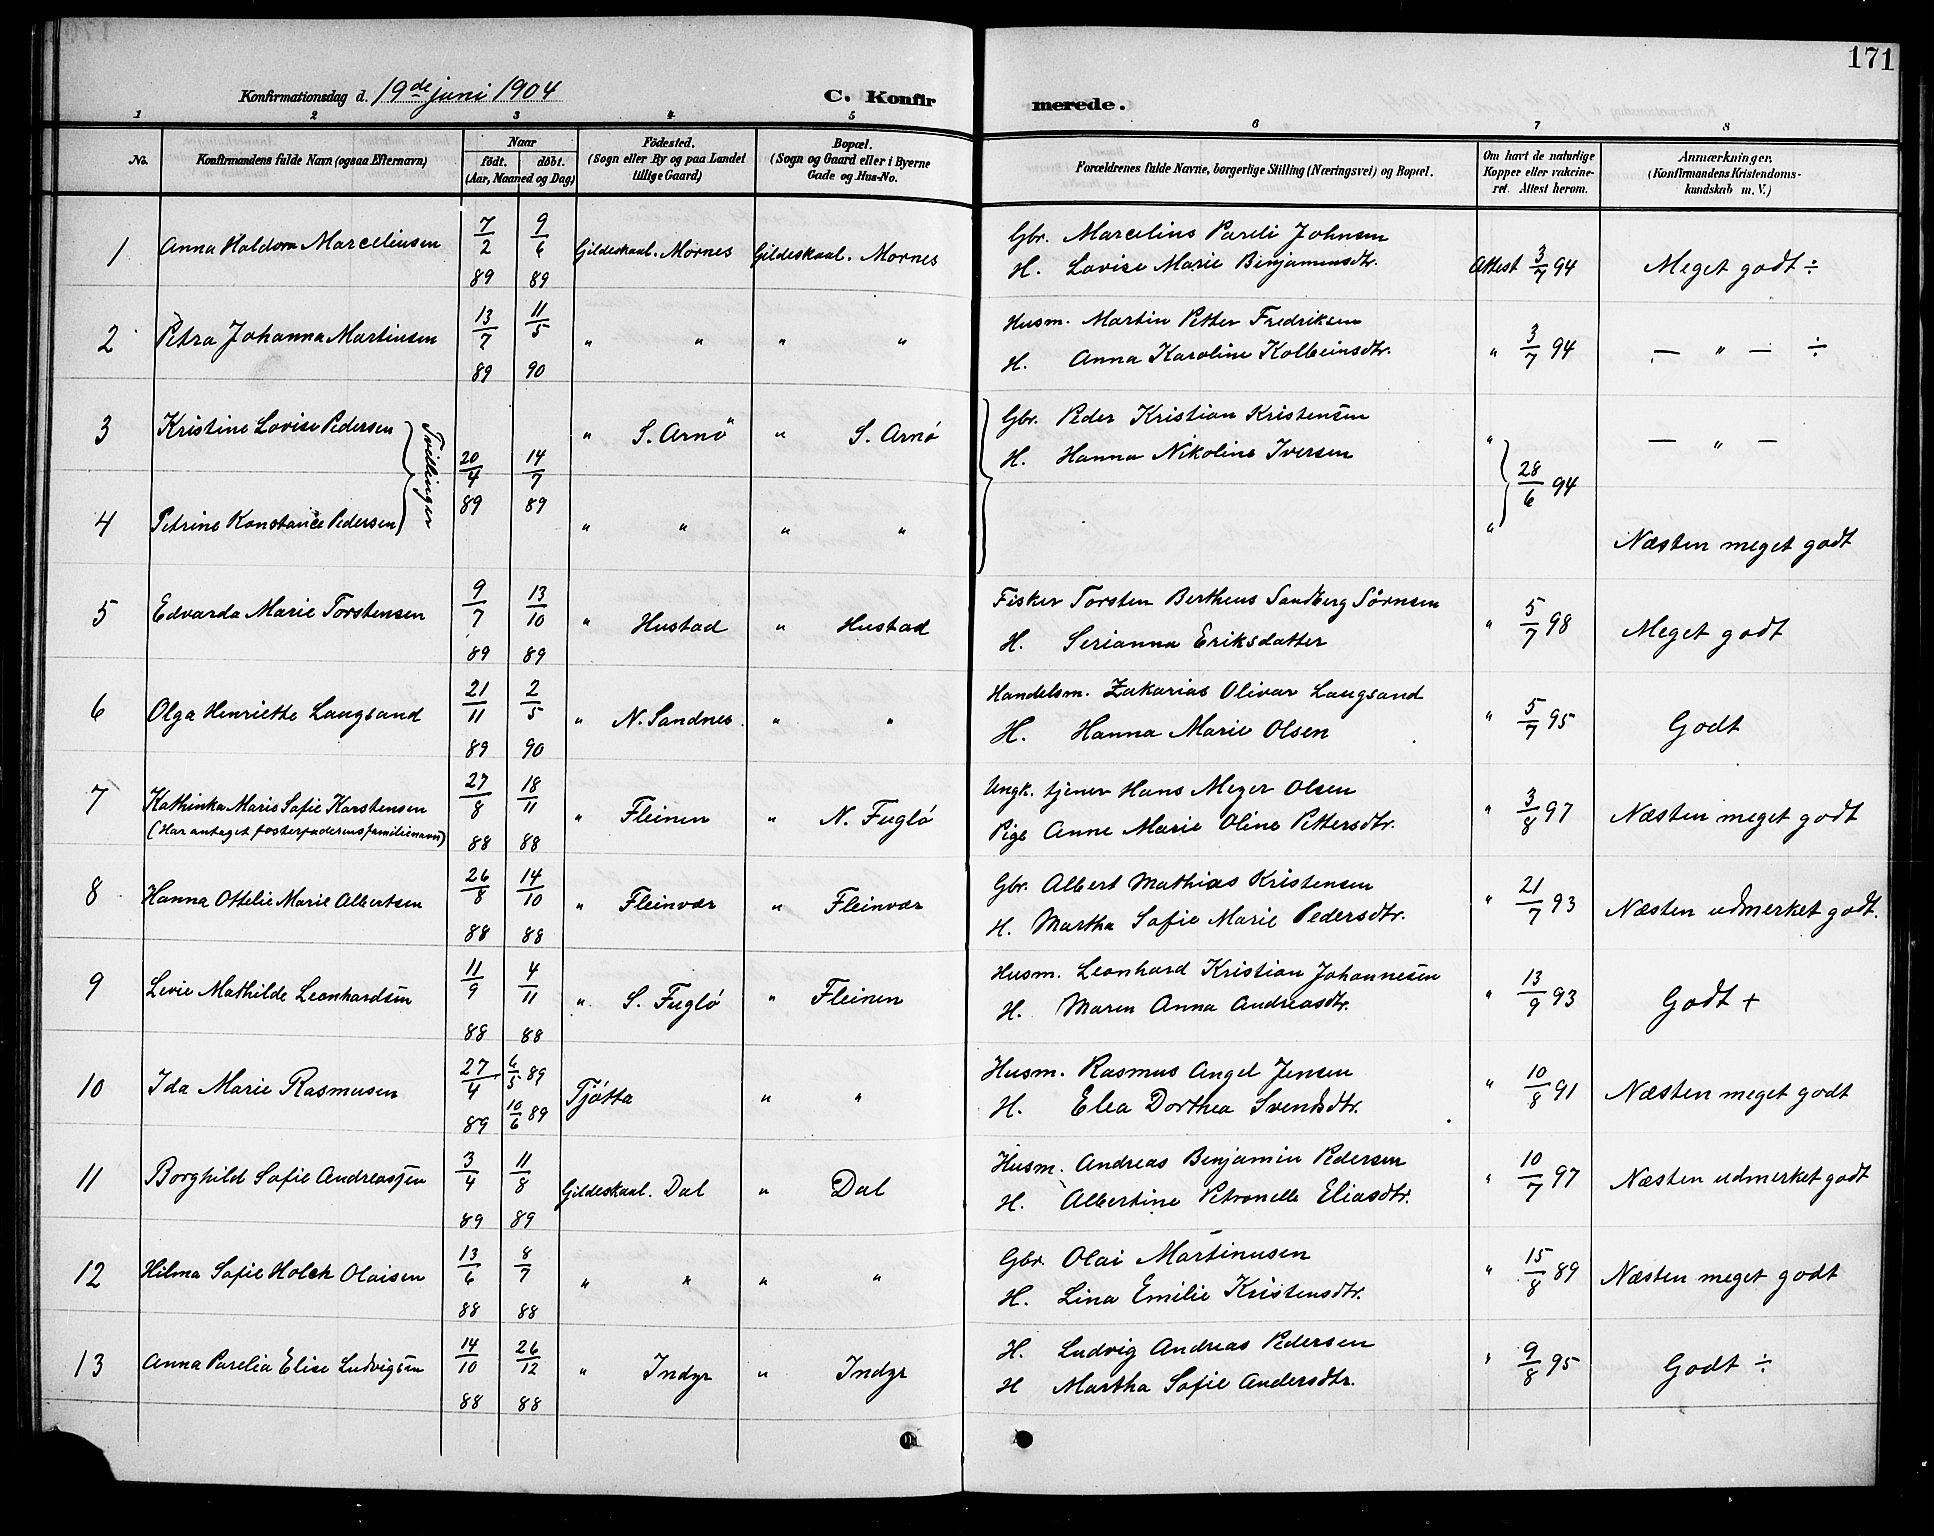 171
Konfirmationsdag d. 19de juni 1904 C. Konfirmerede.
1 2 3 4 5 6 7 8
No. Konfirmandens fulde Navn (ogsaa Efternavn) Naar født. døbt. (Aar, Maaned og Dag) Fødested. (Sogn eller By og paa Landet tillige Gaard) Bopæl. (Sogn og Gaard eller i Byerne Gade og Hus-No. Forældrenes fulde Navne, borgerlige Stilling (Næringsvei) og Bopæl. Om havt de naturlige Kopper eller vakcineret. Attest herom. Anmærkninger. (Konfirmandens Kristendomskundskab m. V.)
1 Anna Haldora Marceliusen 7/2 89 9/6 89 Gildeskaal. Mornes Gildeskaal. Mornes Gbr. Marcelius Pareli Johnsen
H. Lovise Marie Benjaminsdtr. Attest 3/7 94 Meget godt ÷
2 Petra Johanna Martinsen 13/7 89 11/5 90 " " " " Husm. Martin Petter Fredriksen
H. Anna Karoline Kolbeinsdtr. " 3/7 94 — " — ÷
3 Kristine Lovise Pedersen Tvillinger 20/4 89 14/7 89 " S. Arnø " S. Arnø Gbr. Peder Kristian Kristensen
H. Hanna Nikoline Iversen " 28/6 94 — " —
4 Petrine Konstance Pedersen " " " " " Næsten meget godt
5 Edvarda Marie Torstensen 9/7 89 13/10 89 " Hustad " Hustad Fisker Torsten Bertheus Sandberg Sørnsen
H. Serianna Eriksdatter " 5/7 98 Meget godt
6 Olga Henriette Langsand 21/11 89 2/5 90 " N. Sandnes. " " Handelsm. Zakarias Olivar Langsand
H. Hanna Marie Olsen " 5/7 95 Godt
7 Kathinka Marie Sofie Karstensen 27/8 88 18/11 88 " Fleinen " N. Fuglø Ungk. tjener Hans Meyer Olsen
(Har antaget fosterfaderens familienavn) Pige Anne Marie Oline Pettersdtr. " 3/8 97 Næsten meget godt
8 Hanna Ottelie Marie Albertsen 26/8 88 14/10 88 " Fleinvær " Fleinvær Gbr. Albert Mathias Kristensen
H. Martha Sofie Marie Pedersdtr. " 21/7 93 Næsten udmerket godt.
9 Levie Mathilde Leonhardsen 11/9 88 4/11 88 " S. Fuglø " Fleinen Husm. Leonhard Kristian Johannesen
H. Maren Anna Andreasdtr. " 13/9 93 Godt +
10 Ida Marie Rasmusen 27/4 89 6/5 89 10/6 89 Tjøtta " " Husm. Rasmus Angel Jensen
H. Elea Dorthea Svendsdtr. " 10/8 91 Næsten meget godt
11 Borghild Sofie Andreassen 3/4 89 11/8 89 Gildeskaal. Dal " Dal Husm. Andreas Benjamin Pedersen
H. Albertine Petronelle Eliasdtr. " 10/7 97 Næsten udmerket godt
12 Hilma Sofie Holck Olaisen 13/6 88 8/7 88 " " " " Gbr. Olai Martinusen
H. Lina Emilie Kristensdtr. " 15/8 89 Næsten meget godt
13 Anna Parelia Elise Ludvigsen 14/10 88 26/12 88 " Indyr " Indyr H. Ludvig Andreas Pedersen
H Martha Sofie Andersdtr. " 9/8 95 Godt ÷